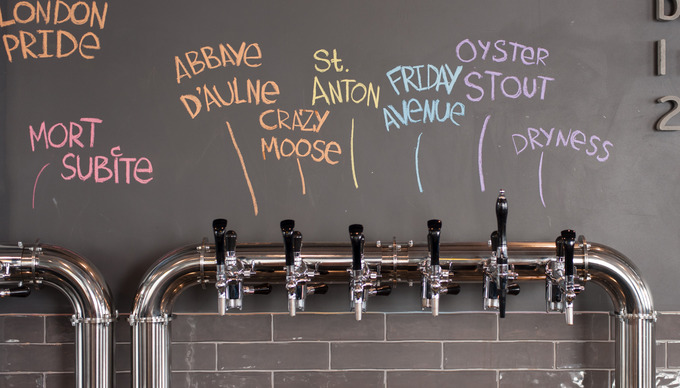 LONDON
PRIDE
MORT
SUBITE
ABBAYE
D'AULNE
CRAZY
MOOSE
St.
ANTON
FRIDAY
AVENUE
OYSTER
STOUT
DRYNESS